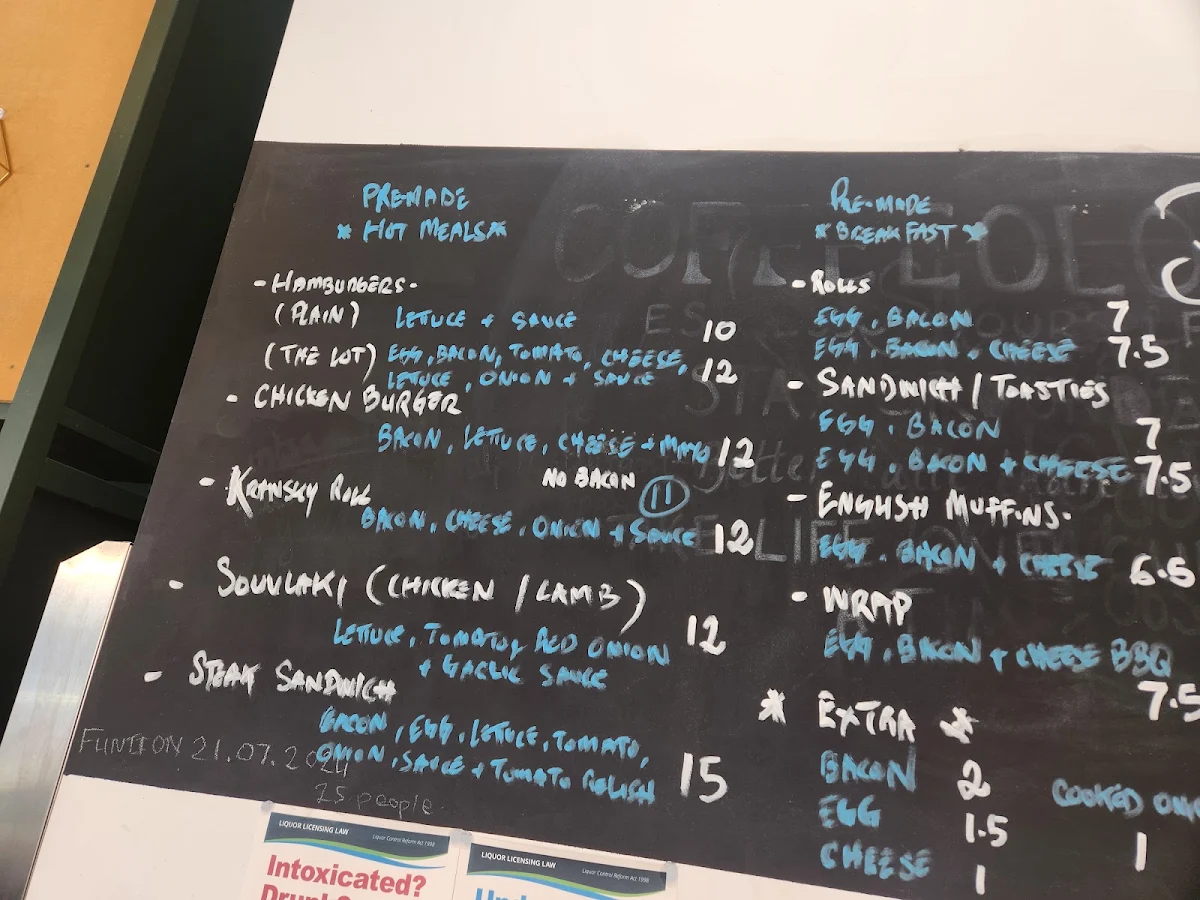 PREMADE
* HOT MEALS *
- HAMBURGERS -
(PLAIN) LETUCE + SAUCE 10
(THE LOT) EGG, BACON, TOMATO, CHEESE, 12
LETUCE, ONION + SAUCE
- CHICKEN BURGER
BACON, LETTUCE, CHEESE + MAYO 12
NO BACON 11
- KRANSKY ROLL
BACON, CHEESE, ONION + SAUCE 12
- SOUVLAKI (CHICKEN / LAMB)
LETTUCE, TOMATO, RED ONION 12
+ GARLIC SAUCE
- STEAK SANDWICH
BACON, EGG, LETUCE, TOMATO,
ONION, SAUCE + TOMATO RELISH 15
FUNTION 21.07.2024
25 people
PRE-MADE
* BREAKFAST *
- ROLLS
EGG, BACON 7
EGG, BACON + CHEESE 7.5
- SANDWICH / TOASTIES
EGG, BACON 7
EGG, BACON + CHEESE 7.5
- ENGLISH MUFFINS -
EGG, BACON + CHEESE 6.5
- WRAP
EGG, BACON + CHEESE BBQ
7.5
* EXTRA *
BACON 2
EGG 1.5
CHEESE 1
COOKED
1
LIQUOR LICENSING LAW
Liquor Control Reform Act 1998
Intoxicated?
LIQUOR LICENSING LAW
Liquor Control Reform Act 1998